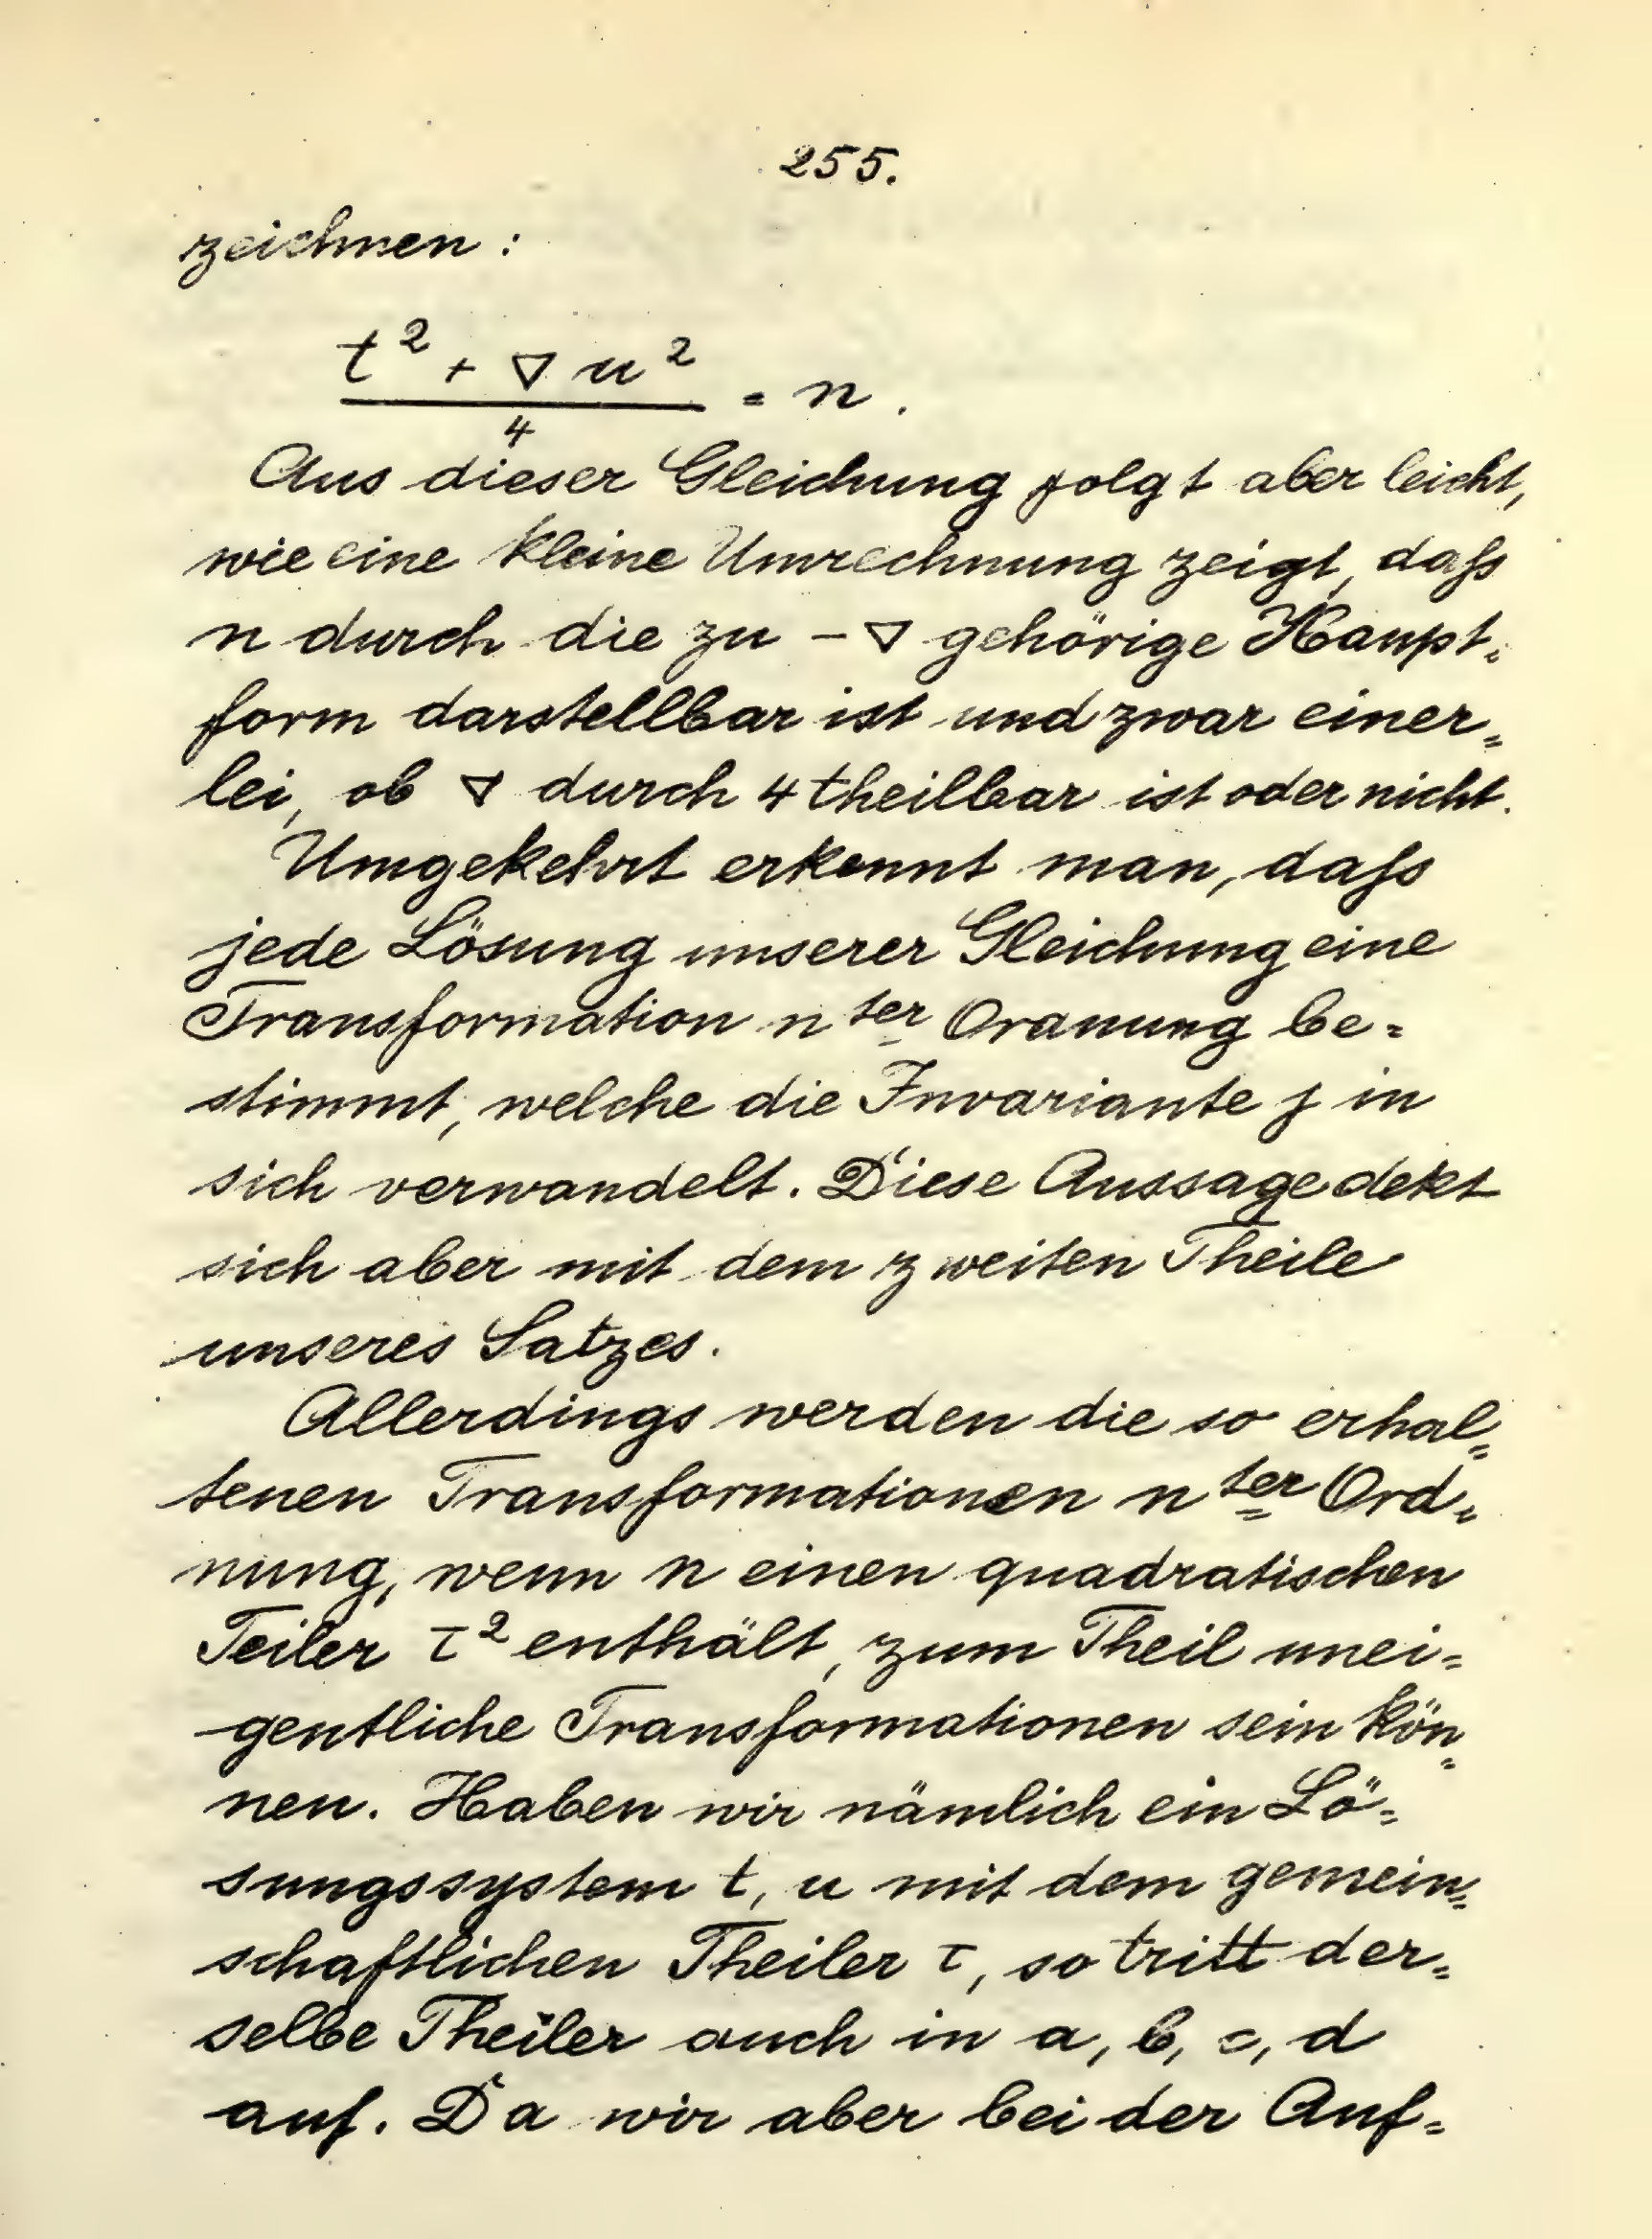 255.
zeichnen :
t² + ∇ u²
4
= n .
Aus dieser Gleichung folgt aber leicht,
wie eine kleine Umrechnung zeigt, daſs
n durch die zu - ∇ gehörige Haupt=
form darstellbar ist und zwar einer=
lei, ob ∇ durch 4 theilbar ist oder nicht.
Umgekehrt erkennt man, daſs
jede Lösung unserer Gleichung eine
Transformation n ter Ordnung be=
stimmt, welche die Invariante j in
sich verwandelt. Diese Aussage dekt
sich aber mit dem zweiten Theile
unseres Satzes.
Allerdings werden die so erhal=
tenen Transformationen n ter Ord=
nung, wenn n einen quadratischen
Teiler τ² enthält, zum Theil unei=
gentliche Transformationen sein kön=
nen. Haben wir nämlich ein Lö=
sungssystem t, u mit dem gemein=
schaftlichen Theiler τ, so tritt der=
selbe Theiler auch in a, b, c, d
auf. Da wir aber bei der Auf=